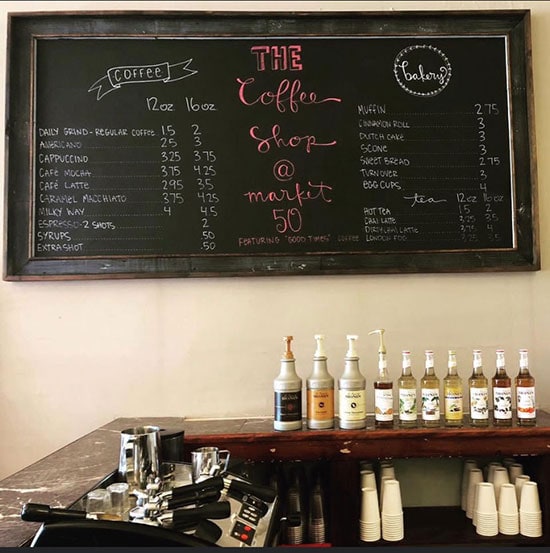 COFFEE
12oz 16oz
DAILY GRIND - REGULAR COFFEE 1.5 2
AMERICANO 2.5 3
CAPPUCCINO 3.25 3.75
CAFE MOCHA 3.75 4.25
CAFE LATTE 2.95 3.5
CARAMEL MACCHIATO 3.75 4.25
MILKY WAY 4 4.5
ESPRESSO-2 SHOTS 2
SYRUPS .50
EXTRA SHOT .50
THE
Coffee
Shop
@
market
50
FEATURING "GOOD TIMES" COFFEE
bakery
MUFFIN 2.75
CINNAMON ROLL 3
DUTCH CAKE 3
SCONE 3
SWEET BREAD 2.75
TURNOVER 3
EGG CUPS 4
tea 12oz 16oz
HOT TEA 1.5 2
CHAI LATTE 3.25 3.5
DIRTY CHAI LATTE 3.75 4
LONDON FOG 3.25 3.5